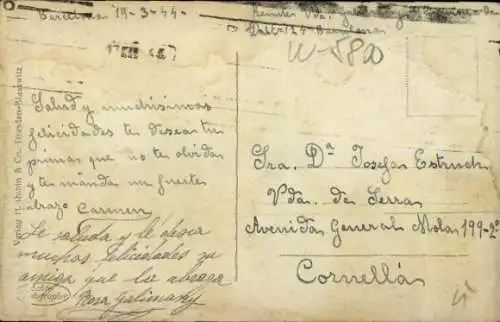 Barcelona 19-3-44-
Remiten Vda.
W-5800
Salud y muchisimas
felicidades te desean tus
primas que no te olvidan
y te manda un fuerte
abrazo Carmen
Le saluda y le desea
muchas felicidades su
amiga que la abraza
Rosa Galimany
Sra. Dª Josefa Estruch
Vda. de Serra
Avenida General Mola 199-2º
Cornellá
& Co., Dresden-Blasewitz
Verlag